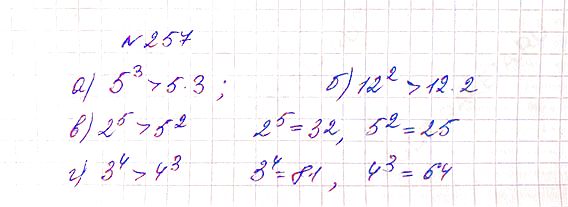 №257
а) 5³ > 5·3 ; б) 12² > 12·2
в) 2⁵ > 5² 2⁵ = 32, 5² = 25
г) 3⁴ > 4³ 3⁴ = 81, 4³ = 64